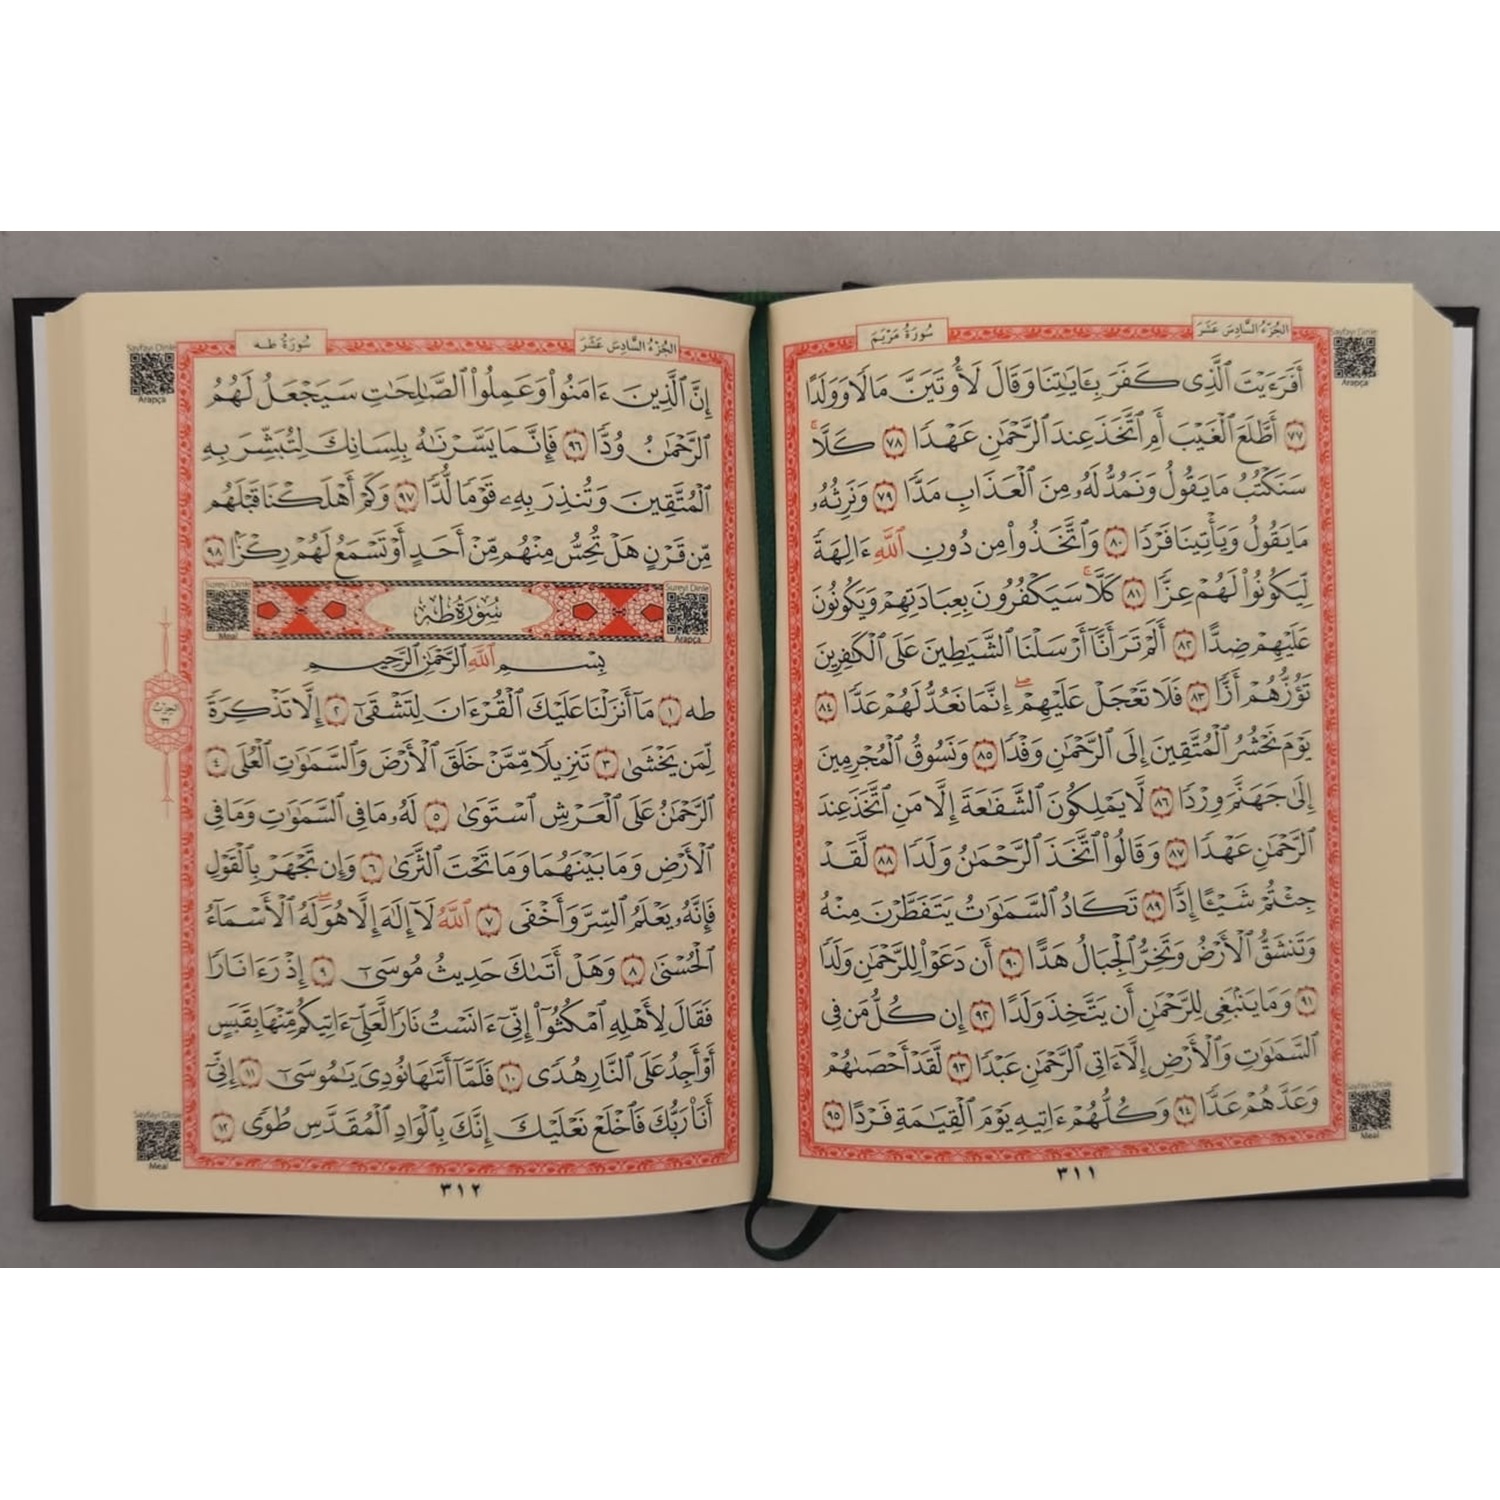 الجزء السادس عشر
سورة مريم
Sayfayı Dinle
Arapça
أَفَرَءَيْتَ ٱلَّذِى كَفَرَ بِـَٔايَـٰتِنَا وَقَالَ لَأُوتَيَنَّ مَالًا وَوَلَدًا
٧٧ أَطَّلَعَ ٱلْغَيْبَ أَمِ ٱتَّخَذَ عِندَ ٱلرَّحْمَـٰنِ عَهْدًا ٧٨ كَلَّا ۚ
سَنَكْتُبُ مَا يَقُولُ وَنَمُدُّ لَهُۥ مِنَ ٱلْعَذَابِ مَدًّا ٧٩ وَنَرِثُهُۥ
مَا يَقُولُ وَيَأْتِينَا فَرْدًا ٨٠ وَٱتَّخَذُوا۟ مِن دُونِ ٱللَّهِ ءَالِهَةً
لِّيَكُونُوا۟ لَهُمْ عِزًّا ٨١ كَلَّا ۚ سَيَكْفُرُونَ بِعِبَادَتِهِمْ وَيَكُونُونَ
عَلَيْهِمْ ضِدًّا ٨٢ أَلَمْ تَرَ أَنَّآ أَرْسَلْنَا ٱلشَّيَـٰطِينَ عَلَى ٱلْكَـٰفِرِينَ
تَؤُزُّهُمْ أَزًّا ٨٣ فَلَا تَعْجَلْ عَلَيْهِمْ ۖ إِنَّمَا نَعُدُّ لَهُمْ عَدًّا ٨٤
يَوْمَ نَحْشُرُ ٱلْمُتَّقِينَ إِلَى ٱلرَّحْمَـٰنِ وَفْدًا ٨٥ وَنَسُوقُ ٱلْمُجْرِمِينَ
إِلَىٰ جَهَنَّمَ وِرْدًا ٨٦ لَّا يَمْلِكُونَ ٱلشَّفَـٰعَةَ إِلَّا مَنِ ٱتَّخَذَ عِندَ
ٱلرَّحْمَـٰنِ عَهْدًا ٨٧ وَقَالُوا۟ ٱتَّخَذَ ٱلرَّحْمَـٰنُ وَلَدًا ٨٨ لَّقَدْ
جِئْتُمْ شَيْـًٔا إِدًّا ٨٩ تَكَادُ ٱلسَّمَـٰوَٰتُ يَتَفَطَّرْنَ مِنْهُ
وَتَنشَقُّ ٱلْأَرْضُ وَتَخِرُّ ٱلْجِبَالُ هَدًّا ٩٠ أَن دَعَوْا۟ لِلرَّحْمَـٰنِ وَلَدًا
٩١ وَمَا يَنۢبَغِى لِلرَّحْمَـٰنِ أَن يَتَّخِذَ وَلَدًا ٩٢ إِن كُلُّ مَن فِى
ٱلسَّمَـٰوَٰتِ وَٱلْأَرْضِ إِلَّآ ءَاتِى ٱلرَّحْمَـٰنِ عَبْدًا ٩٣ لَّقَدْ أَحْصَىٰهُمْ
وَعَدَّهُمْ عَدًّا ٩٤ وَكُلُّهُمْ ءَاتِيهِ يَوْمَ ٱلْقِيَـٰمَةِ فَرْدًا ٩٥
Sayfayı Dinle
Meal
٣١١
الجزء السادس عشر
سورة طه
Sayfayı Dinle
Arapça
إِنَّ ٱلَّذِينَ ءَامَنُوا۟ وَعَمِلُوا۟ ٱلصَّـٰلِحَـٰتِ سَيَجْعَلُ لَهُمُ
ٱلرَّحْمَـٰنُ وُدًّا ٩٦ فَإِنَّمَا يَسَّرْنَـٰهُ بِلِسَانِكَ لِتُبَشِّرَ بِهِ
ٱلْمُتَّقِينَ وَتُنذِرَ بِهِۦ قَوْمًا لُّدًّا ٩٧ وَكَمْ أَهْلَكْنَا قَبْلَهُم
مِّن قَرْنٍ هَلْ تُحِسُّ مِنْهُم مِّنْ أَحَدٍ أَوْ تَسْمَعُ لَهُمْ رِكْزًۢا ٩٨
Sureyi Dinle
Arapça
سُورَةُ طه
Sureyi Dinle
Meal
بِسْمِ ٱللَّهِ ٱلرَّحْمَـٰنِ ٱلرَّحِيمِ
طه ١ مَآ أَنزَلْنَا عَلَيْكَ ٱلْقُرْءَانَ لِتَشْقَىٰٓ ٢ إِلَّا تَذْكِرَةً
لِّمَن يَخْشَىٰ ٣ تَنزِيلًا مِّمَّنْ خَلَقَ ٱلْأَرْضَ وَٱلسَّمَـٰوَٰتِ ٱلْعُلَى ٤
ٱلرَّحْمَـٰنُ عَلَى ٱلْعَرْشِ ٱسْتَوَىٰ ٥ لَهُۥ مَا فِى ٱلسَّمَـٰوَٰتِ وَمَا فِى
ٱلْأَرْضِ وَمَا بَيْنَهُمَا وَمَا تَحْتَ ٱلثَّرَىٰ ٦ وَإِن تَجْهَرْ بِٱلْقَوْلِ
فَإِنَّهُۥ يَعْلَمُ ٱلسِّرَّ وَأَخْفَى ٧ ٱللَّهُ لَآ إِلَـٰهَ إِلَّا هُوَ ۖ لَهُ ٱلْأَسْمَآءُ
ٱلْحُسْنَىٰ ٨ وَهَلْ أَتَىٰكَ حَدِيثُ مُوسَىٰٓ ٩ إِذْ رَءَا نَارًا
فَقَالَ لِأَهْلِهِ ٱمْكُثُوٓا۟ إِنِّىٓ ءَانَسْتُ نَارًا لَّعَلِّىٓ ءَاتِيكُم مِّنْهَا بِقَبَسٍ
أَوْ أَجِدُ عَلَى ٱلنَّارِ هُدًى ١٠ فَلَمَّآ أَتَىٰهَا نُودِىَ يَـٰمُوسَىٰٓ ١١ إِنِّىٓ
أَنَا۠ رَبُّكَ فَٱخْلَعْ نَعْلَيْكَ إِنَّكَ بِٱلْوَادِ ٱلْمُقَدَّسِ طُوًى ١٢
Sayfayı Dinle
Meal
٣١٢